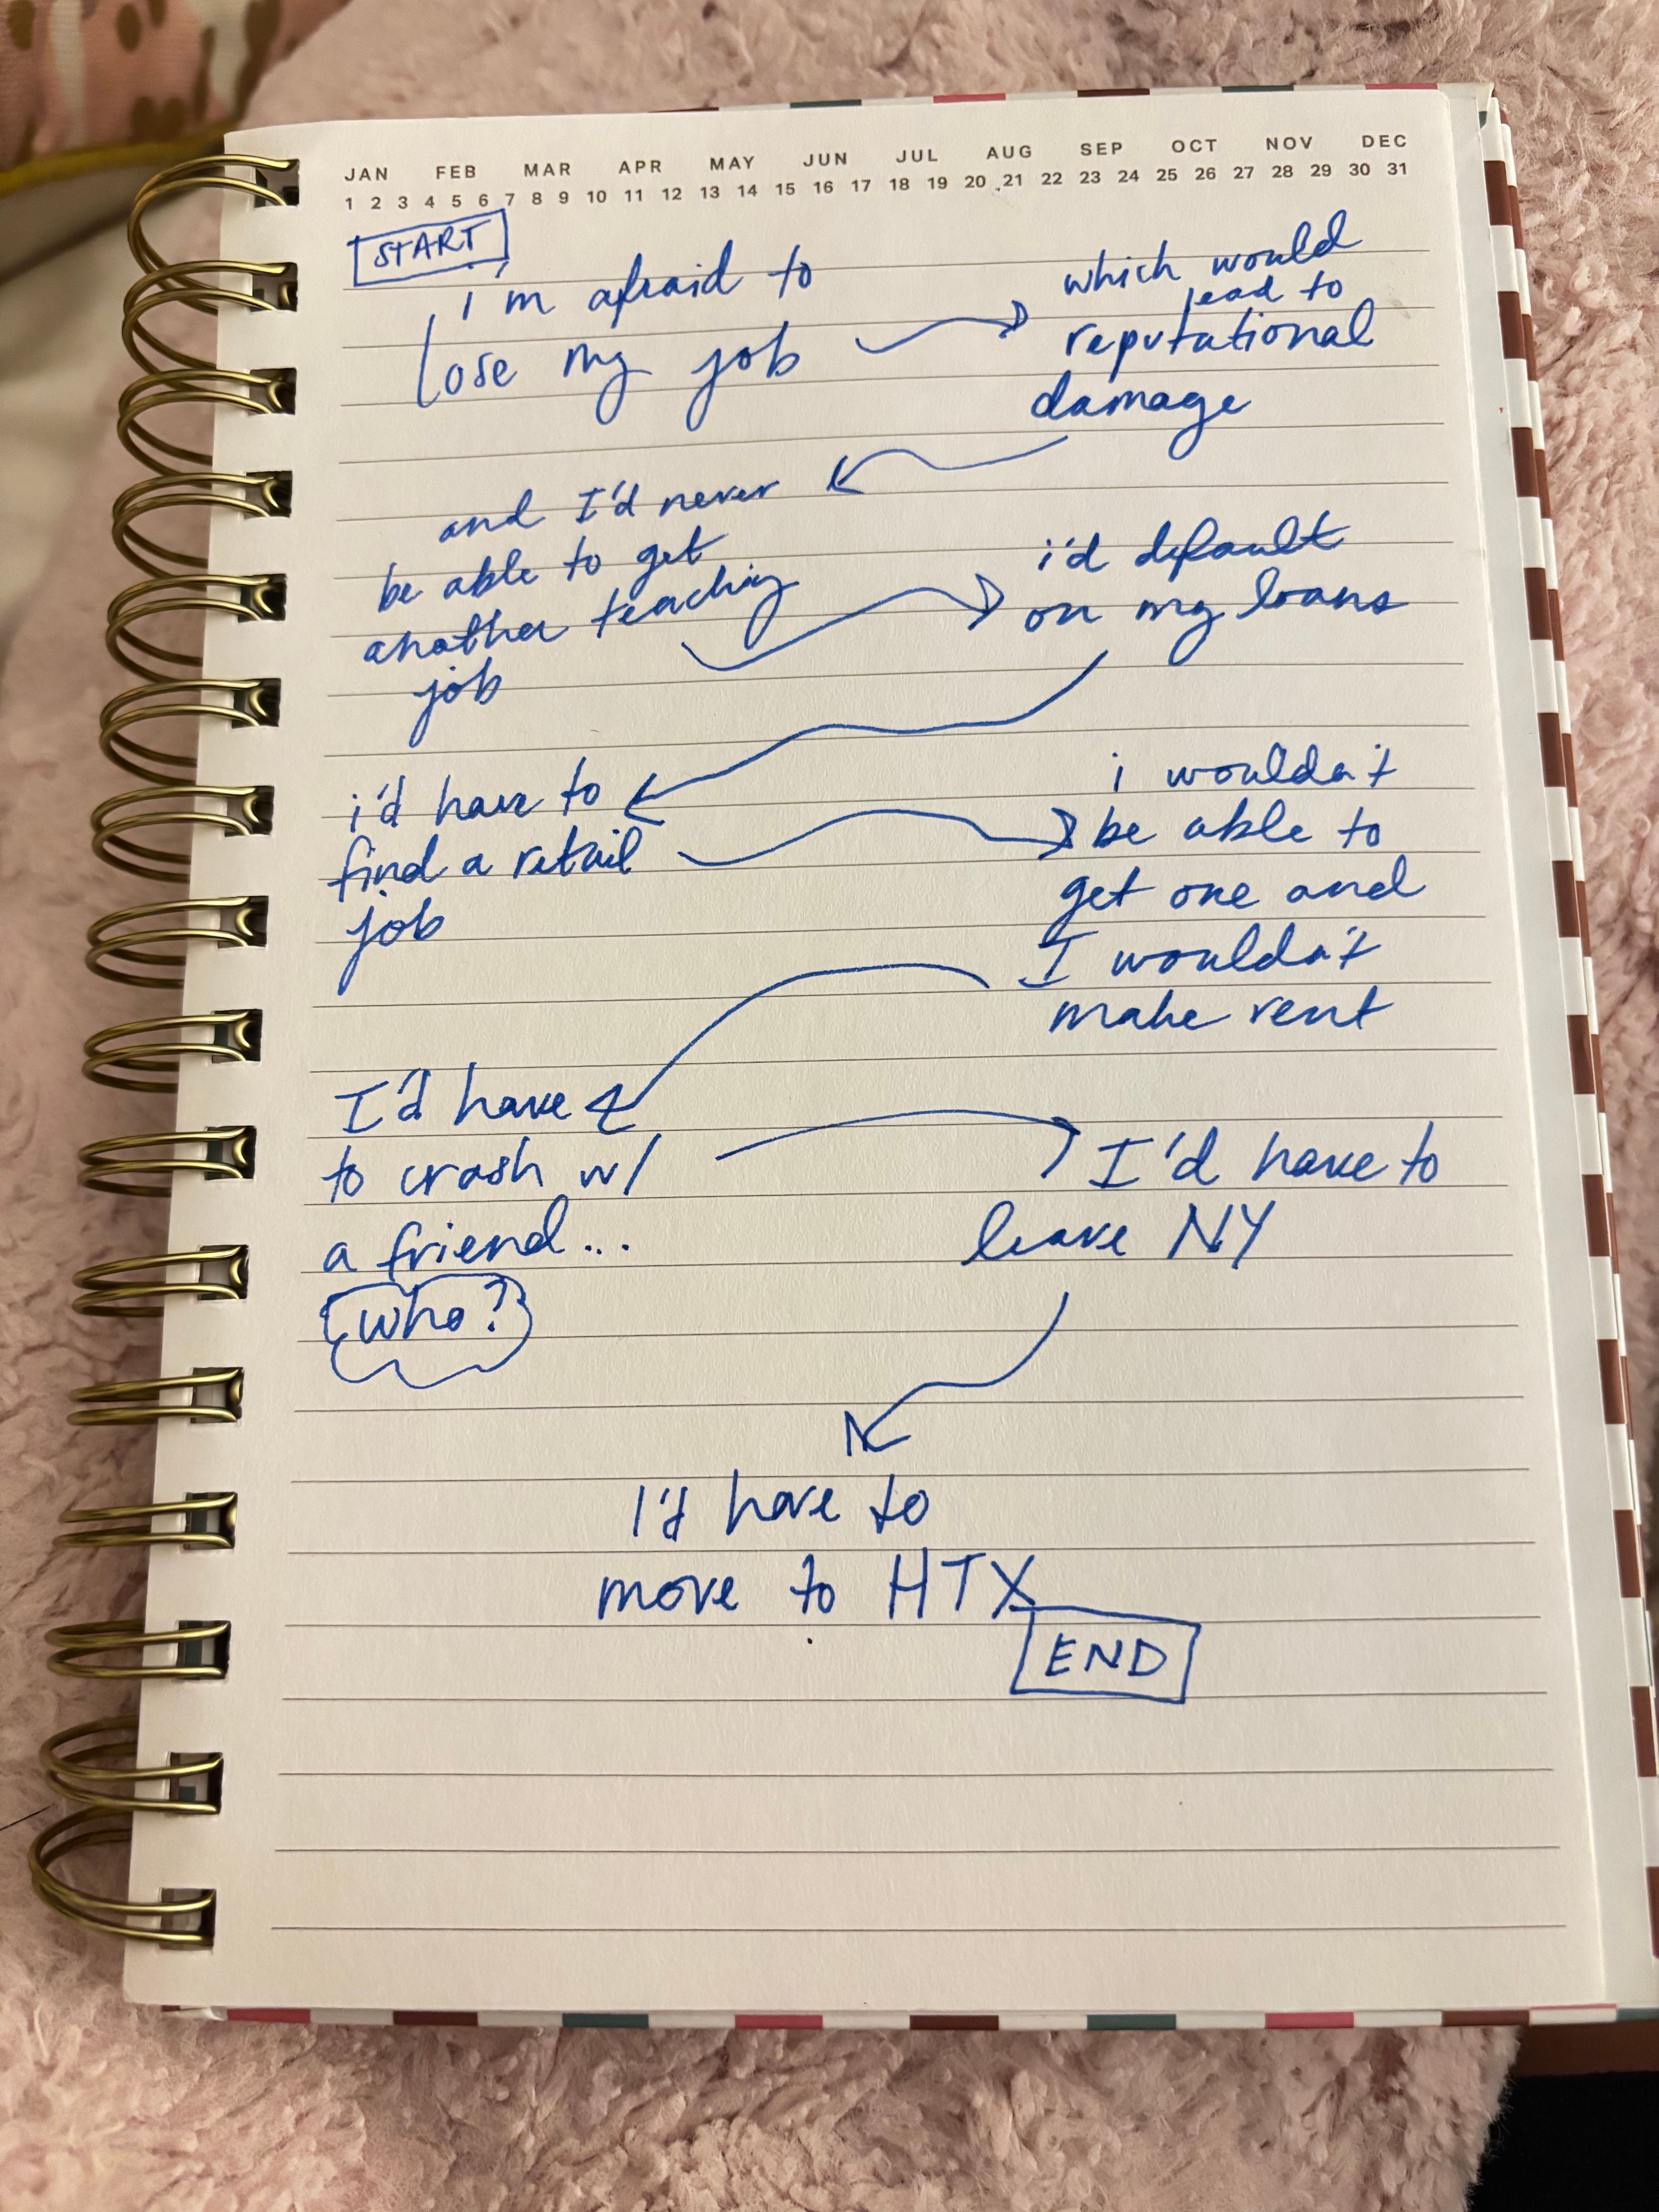 JAN FEB MAR APR MAY JUN JUL AUG SEP OCT NOV DEC
1 2 3 4 5 6 7 8 9 10 11 12 13 14 15 16 17 18 19 20 21 22 23 24 25 26 27 28 29 30 31
START
i'm afraid to
lose my job
which would
lead to
reputational
damage
and I'd never
be able to get
another teaching
job
i'd default
on my loans
i'd have to
find a retail
job
i wouldn't
be able to
get one and
I wouldn't
make rent
I'd have
to crash w/
a friend...
who?
I'd have to
leave NY
I'd have to
move to HTX
END